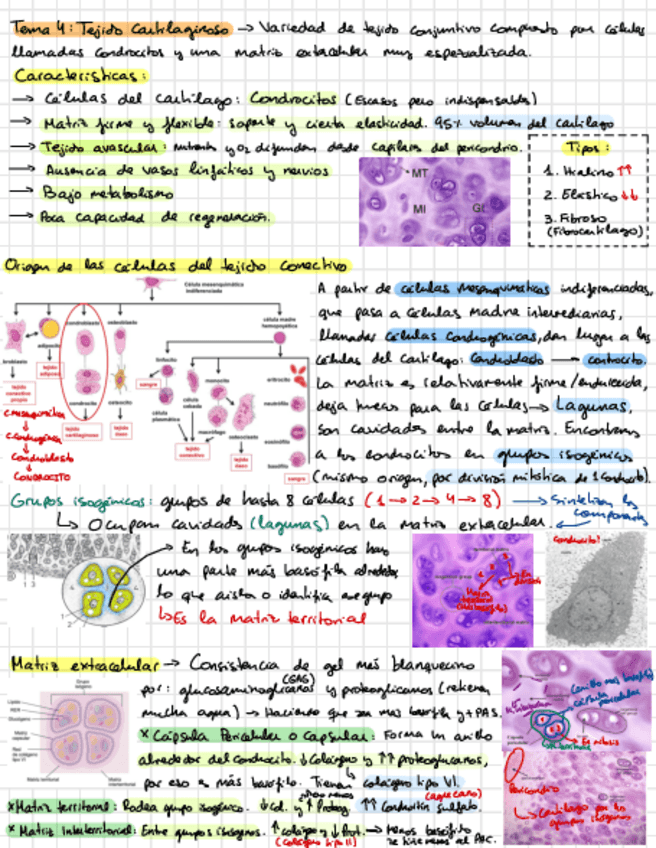 Tema 4: Tejido Cartilaginoso → Variedad de tejido conjuntivo compuesto por células
llamadas condrocitos y una matriz extracelular muy especializada.
Características:
→ Células del cartílago: Condrocitos (Escasos pero indispensables)
→ Matriz firme y flexible: soporte y cierta elasticidad. 95% volumen del cartílago
→ Tejido avascular: nutrientes y O2 difunden desde capilares del pericondrio.
→ Ausencia de vasos linfáticos y nervios
→ Bajo metabolismo
→ Poca capacidad de regeneración.
Tipos:
1. Hialino ↑↑
2. Elástico ↓↓
3. Fibroso
(Fibrocartílago)
MT
MI
GI
Origen de las células del tejido conectivo
Célula mesenquimática
indiferenciada
fibroblasto
adipocito
condroblasto
osteoblasto
célula madre
hemopoyética
tejido
conectivo
propio
tejido
adiposo
condrocito
osteocito
tejido
cartilaginoso
tejido
óseo
linfocito
sangre
célula
plasmática
célula
cebada
monocito
macrófago
osteoclasto
tejido
conectivo
tejido
óseo
eritrocito
neutrófilo
eosinófilo
basófilo
sangre
C. mesenquimática
C. condrogénica
Condroblasto
CONDROCITO
A partir de células mesenquimáticas indiferenciadas,
que pasa a células madre intermediarias,
llamadas células condrogénicas, dan lugar a las
células del cartílago: Condroblasto → condrocito.
La matriz es relativamente firme/endurecida,
deja huecos para las células → Lagunas,
son cavidades entre la matriz. Encontramos
a los condrocitos en grupos isogénicos
(mismo origen, por división mitótica de 1 Condrob).
Grupos isogénicos: grupos de hasta 8 células (1→2→4→8) → Sintetizan los
componentes
↳ Ocupan cavidades (lagunas) en la matriz extracelular.
→ En los grupos isogénicos hay
una parte más basófila alrededor
lo que aísla o identifica ese grupo
↳ Es la matriz territorial
Condrocito?
Matriz extracelular → Consistencia de gel más blanquecino
(GAG)
por: glucosaminoglicanos y proteoglicanos (retienen
mucha agua) → Haciendo que sea más basófila y + PAS.
× Cápsula Pericelular o capsular: Forma un anillo
alrededor del condrocito. ↓ Colágeno y ↑↑ proteoglicanos,
por eso es más basófilo. Tienen colágeno tipo VI.
(agrecano)
× Matriz territorial: Rodea grupo isogénico. ↓ Col. y ↑ Proteog. ↑↑ Condroitín sulfato.
× Matriz Interterritorial: Entre grupos isógenos. ↑ colágeno y ↓ Prot. → Menos basófilo
(Colágeno tipo II)
Grupo
isógeno
Lípidos
RER
Glucógeno
Matriz
capsular
Red
de colágeno
tipo VI
Matriz territorial
Matriz
interterritorial
(anillo más basófilo)
cápsula
pericelular
En mitosis
Pericondrio
↳ Cartílago por los
grupos isógenos